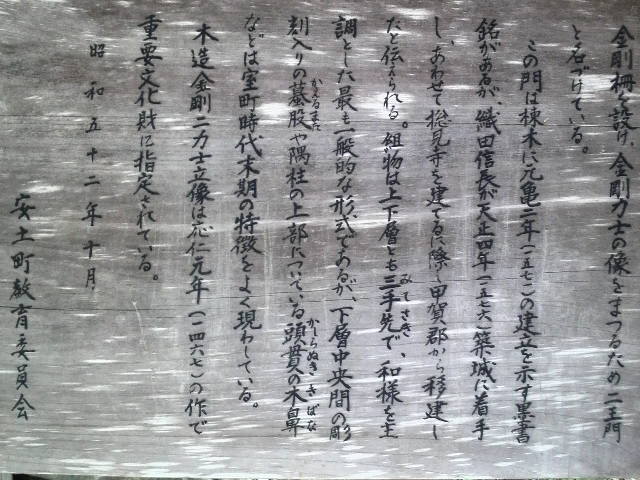 金剛柵を設け、金剛力士の像をまつるため二王門
と名づけている。
この門は棟木に元亀二年（一五七一）の建立を示す墨書
銘があるが、織田信長が天正四年（一五七六）築城に着手
し、あわせて摠見寺を建てるに際し甲賀郡から移建し
たと伝えられる。組物は上下層とも三手先で、和様を主
調とした最も一般的な形式であるが、下層中央間の彫
刻入りの蟇股や隅柱の上部についている頭貫の木鼻
などは室町時代末期の特徴をよく現わしている。
木造金剛二力士立像は応仁元年（一四六七）の作で
重要文化財に指定されている。
昭和五十二年十月
安土町教育委員会